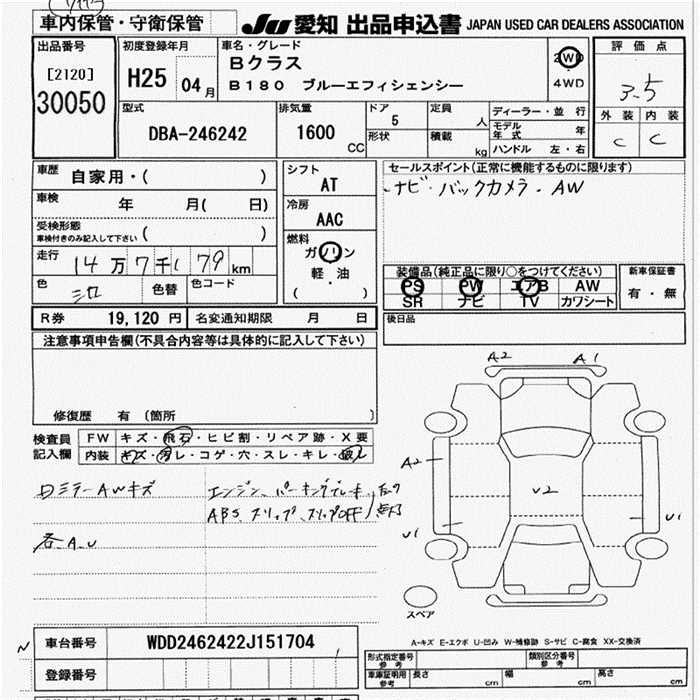 車内保管・守衛保管 JU 愛知 出品申込書 JAPAN USED CAR DEALERS ASSOCIATION
出品番号 初度登録年月 車名・グレード 評価点
[2120] H25 04月 Bクラス 2WD
30050 B180 ブルーエフィシェンシー 4WD 3.5
型式 排気量 ドア 定員 ディーラー・並 行 外装 内装
DBA-246242 1600 CC 5 人 モデル年式 年 C C
形状 積載 kg ハンドル 左・右
車歴 自家用・( ) シフト AT セールスポイント(正常に機能するものに限ります)
車検 年 月( 日) 冷房 AAC ナビ・バックカメラ・AW
受検形態
車検付きのみ記入して下さい ( )
走行 14万7千179km 燃料 ガソリン
軽・油
( )
色 シロ 色替 色コード
装備品(純正品に限り○をつけてください) 新車保証書
PS PW エアB AW 有・無
SR ナビ TV カワシート
R券 19,120 円 名変通知期限 月 日 後日品
注意事項申告欄(不具合内容等は具体的に記入して下さい)
修復歴 有 (箇所 )
検査員 FW キズ・飛石・ヒビ割・リペア跡・X要
記入欄 内装 キズ・汚レ・コゲ・穴・スレ・キレ・破レ
ロミラーAWキズ エンジン、パーキングブレーキ
ABS、スリップ、スリップOFF 点灯
各A.U
A2 A1
A2
V2
U1 U1
スペア
A-キズ E-エクボ U-凹み W-補修跡 S-サビ C-腐食 XX-交換済
車台番号 WDD2462422J151704
登録番号
型式指定番号 参考 類別区分番号 参考
車庫証明用 参考 長さ cm 幅 cm 高さ cm